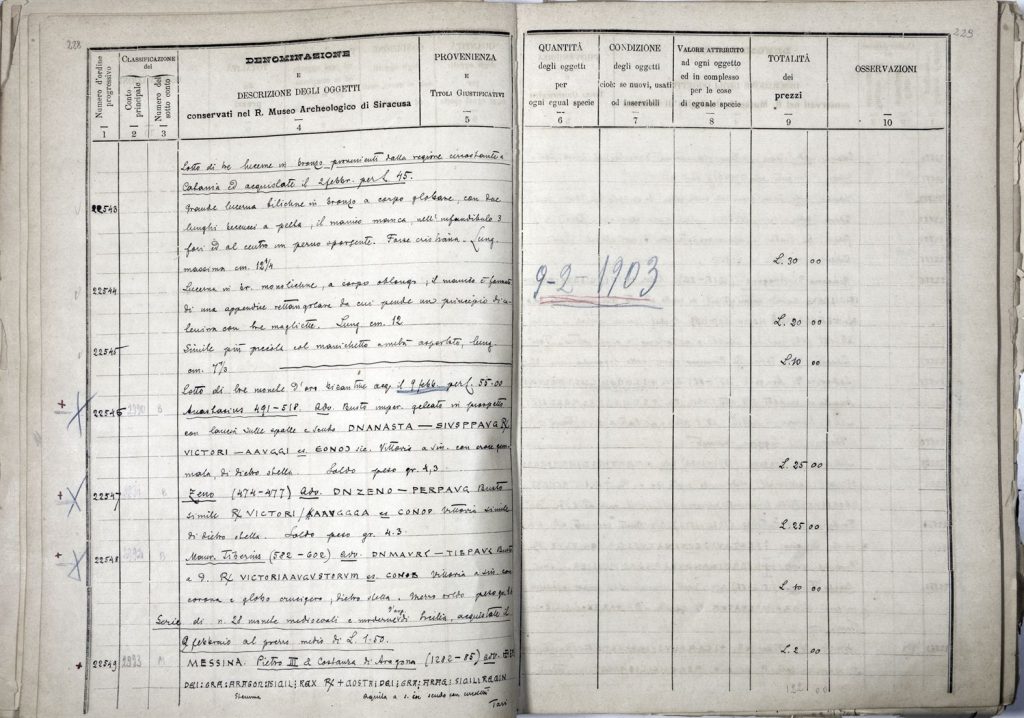 228
229
Numero d'ordine progressivo
CLASSIFICAZIONE del
Conto principale
Numero del sotto conto
DENOMINAZIONE
E
DESCRIZIONE DEGLI OGGETTI
conservati nel R. Museo Archeologico di Siracusa
PROVENIENZA
E
TITOLI GIUSTIFICATIVI
QUANTITÀ
degli oggetti
per
ogni egual specie
CONDIZIONE
degli oggetti
cioè: se nuovi, usati
od inservibili
VALORE ATTRIBUITO
ad ogni oggetto
ed in complesso
per le cose
di eguale specie
TOTALITÀ
dei
prezzi
OSSERVAZIONI
1 2 3 4 5 6 7 8 9 10
Lotto di tre lucerne in bronzo provenienti dalla regione circostante a
Catania ed acquistate il 2 febbr. per £ 45.
22543 Grande lucerna bilichne in bronzo a corpo globare, con due
lunghi beccucci a pelta, il manico manca, nell'infundibulo 3
fori ed al centro un perno sporgente. Forse cristiana. Lung.
massima cm. 12 1/4 L. 30 00
22544 Lucerna in br. monolichne, a corpo oblungo, il manico è formato
di una appendice rettangolare da cui pende un principio di ca
tenina con tre magliette. Lung. cm. 12 L. 20 00
22545 Simile più piccola col manichetto asportato, lung.
cm. L. 10 00
9-2-1903
Lotto di tre monete d'oro bizantine acq. il 9 febb. per £. 55.00
22546 2990 B Anastasius 491-518. Adv. Busto imper. galeato in prospetto
con lancia sulle spalle e scudo DNANASTA — SIVSPPAVG R/
VICTORI — AAVGGI es. CONOB Vittoria a sin. con croce gem
mata, di dietro stella. Soldo peso gr. 4,3. L. 25 00
22547 B Zeno (474-477) Adv. DNZENO — PERPAVG Busto
simile R/ VICTORI/AAVGGGA es CONOB Vittoria simile
di dietro stella. Soldo peso gr. 4.3. L. 25 00
22548 B Maur. Tiberius (582-602) Adv. DNMAVRC — TIBPAVG Busto
a d. R/ VICTORIAAVGVSTORVM es. CONOB Vittoria a sin. con
corona e globo crucigero, dietro stella. Mezzo soldo peso gr. L. 10 00
Serie di n. 28 monete medioevali e moderne d'arg. di Sicilia, acquistate il
9 febbraio al prezzo medio di L. 1.50.
22549 2993 M MESSINA. Pietro III e Costanza di Aragona (1282-85) adv. L. 2 00
DEI:GRA:ARAGON:SICIL:REX R/ + COSTA:DEI:GRA:ARAG:SICIL:REGIN
Stemma aquila a s. Tarì
132 00